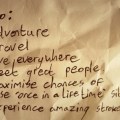 o:
adventure
ravel
ve everywhere
eet great people
aximise chances of
se "once in a lifetime" sit
xperience amazing stress